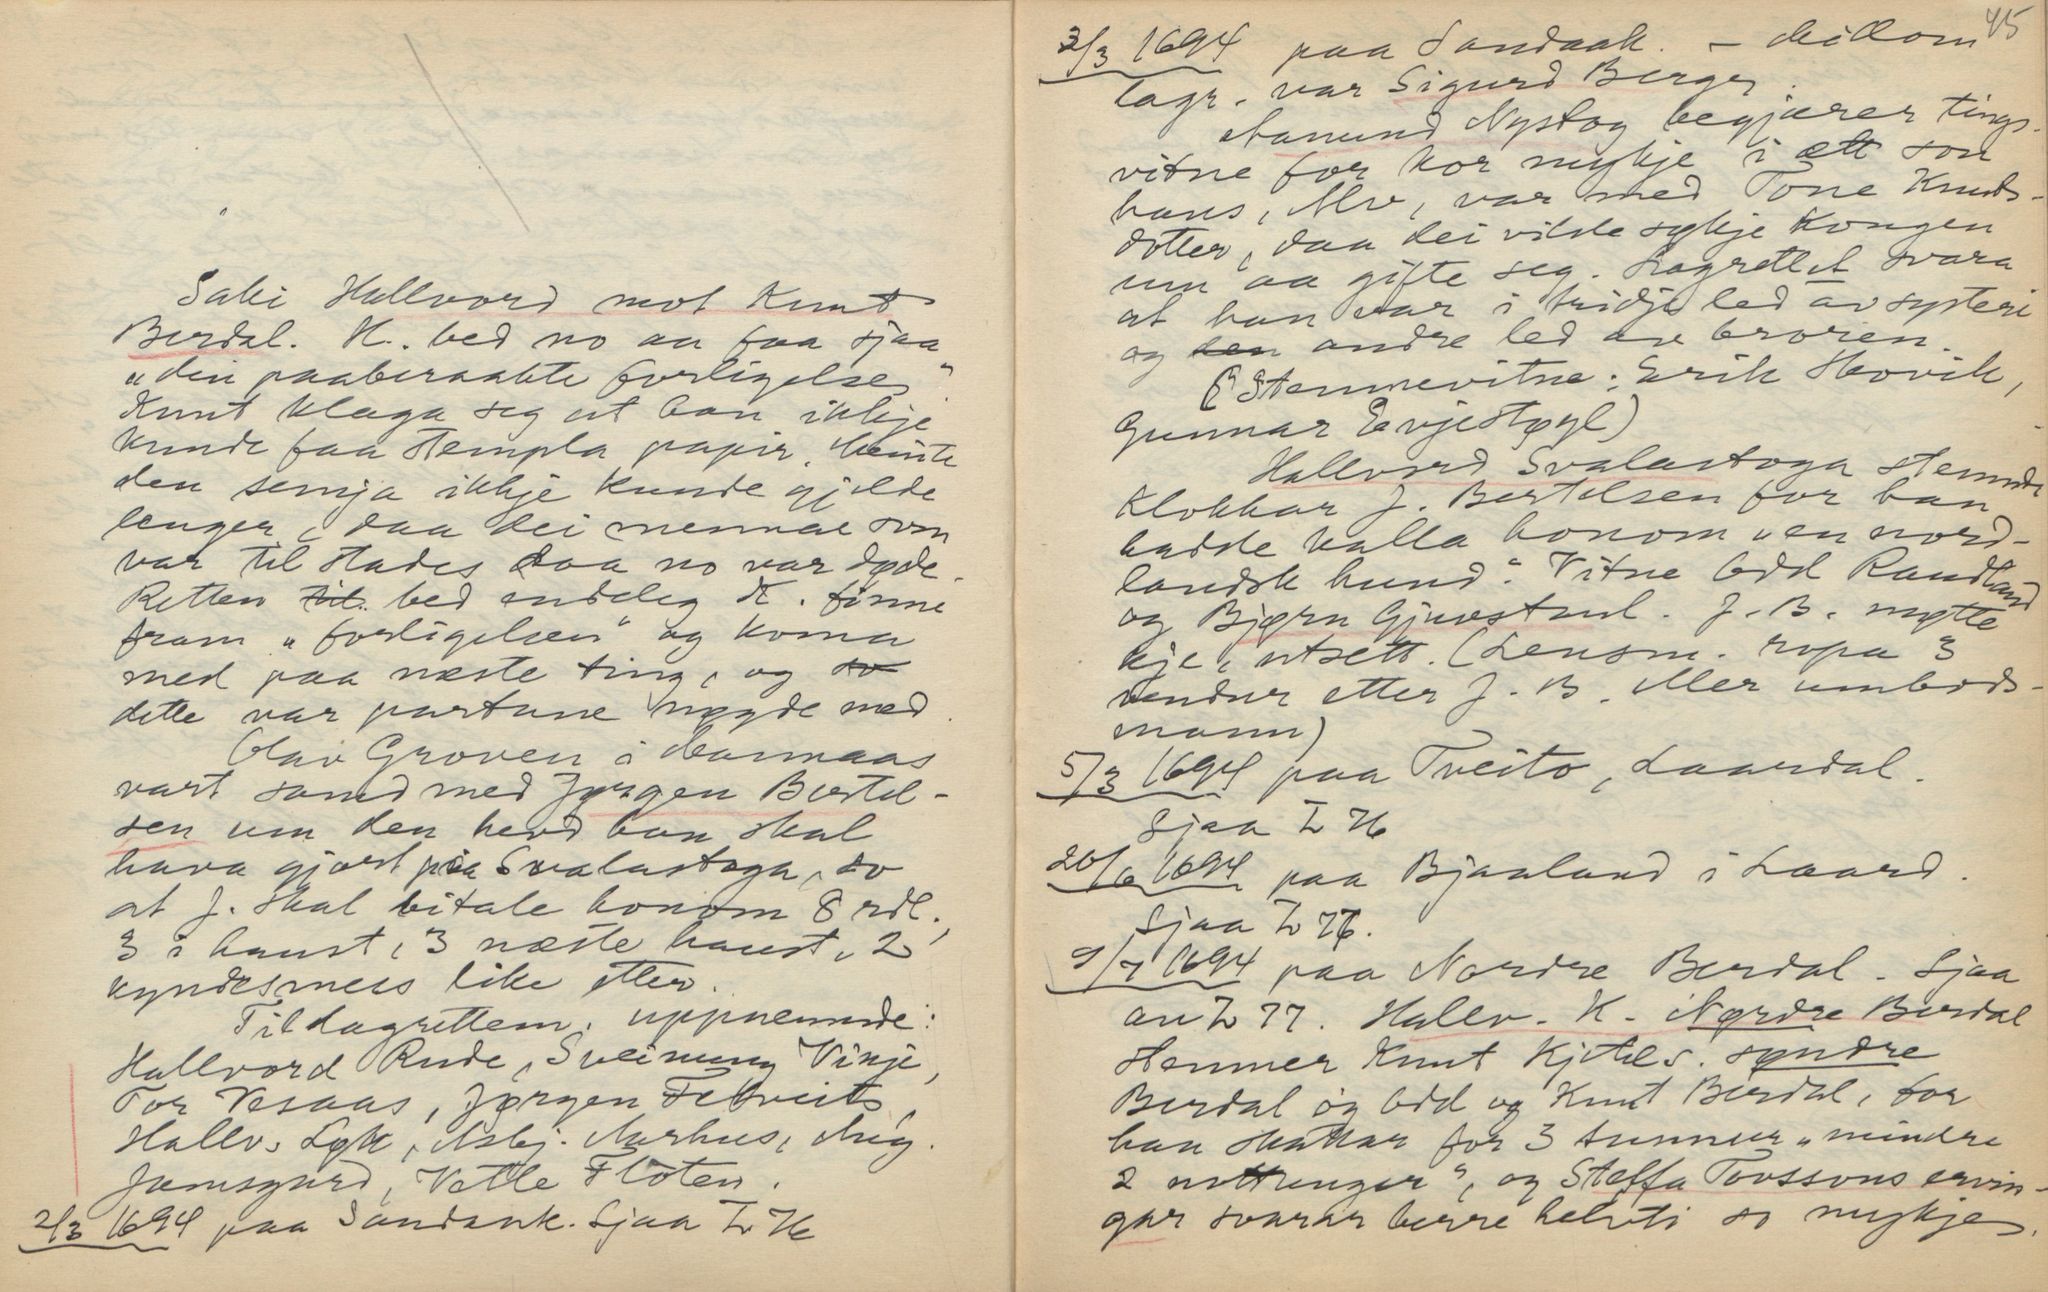 Saki Hallvord mot Knut
Berdal. K. bed no aa faa sjaa
"din paaberaabte forligelse"
Knut klaga seg at han ikkje
kunde faa stempla papir. Meinte
den semja ikkje kunde gjelde
lenger, daa dei mennar som
var til stades daa no var døde.
Retten til bed endeleg K. finne
fram "forligelsen" og koma
med paa næste ting, og so
dette var partane nøgde med.
Olav Groven i Mannaas
vart samd med Jørgen Bertel-
sen um den herd han skal
hava gjort paa Svalastoga, so
at J. skal bitale honom 8 rdl.,
3 i haust, 3 næste haust, 2
kyndesmess like etter.
Til lagrettem. uppnemnde:
Hallvord Rude, Sveinung Vinje,
Tor Vesaas, Jørgen Felveit,
Hallv. Løk, Asbj. Aarhus, Aug.
Jamsgard, Vetle Floten.
2/3 1694 paa Sandaak. Sjaa I 76
45
3/3 1694 paa Sandaak. – Millom
lagr. var Sigurd Berge.
Aanund Nystog begjærer tings-
vitne for kor mykje i ætt son
hans, Alv, var med Tone Knuts-
dotter, daa dei vilde sykje Kongen
um aa gifte seg. Lagrettet svara
at han var i tridje led av systeri
og den andre led av broren.
(Stemnevitne: Eirik Hovik,
Gunnar Evjestøyl)
Hallvord Svalastoga stemnde
Klokkar J. Bertelsen for han
hadde kalla honom "en nord-
landsk hund". Vitne Odd Raudland
og Bjørn Gjuvstul. J. B. møtte
kje, utsett. (Lensm. ropa 3
vendur etter J. B. eller umbods-
mann)
5/3 1694 paa Tveito, Laardal.
Sjaa I 76
20/6 1694 paa Bjaaland i Laard.
Sjaa I 76.
9/7 1694 paa Nordre Berdal. Sjaa
au I 77. Hallv. K. Nørdre Berdal
stemner Knut Kjetils. syndre
Berdal og Odd og Knut Berdal, for
han skattar for 3 tunnur "mindre
2 nottunger", og Steffa Tovssons ervin-
gar svarar berre helvti so mykje.